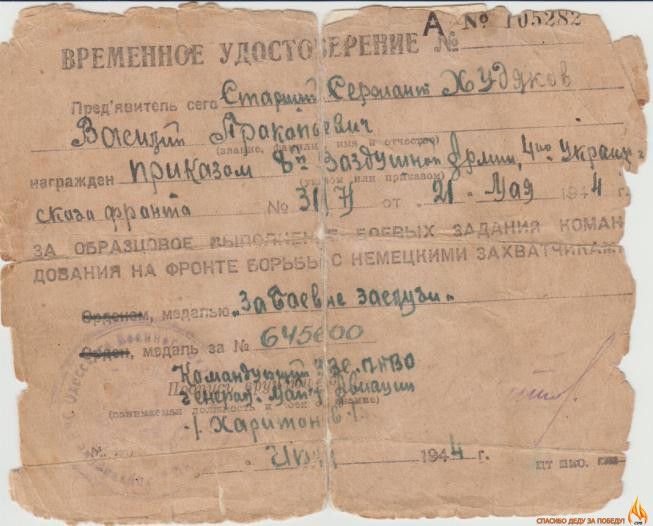 А № 105282
ВРЕМЕННОЕ УДОСТОВЕРЕНИЕ №
Пред'явитель сего Старший Сержант Худяков
Василий Пракопьевич
(звание, фамилия, имя и отчество)
награжден приказом 8й Воздушной Армии, 4го Украин-
(указом или приказом)
скаго фронта № 31/Н от 21. Мая 1944 г.
ЗА ОБРАЗЦОВОЕ ВЫПОЛНЕНИЕ БОЕВЫХ ЗАДАНИЯ КОМАН-
ДОВАНИЯ НА ФРОНТЕ БОРЬБЫ С НЕМЕЦКИМИ ЗАХВАТЧИКАМИ
Орденом, медалью „За Боевые заслуги"
Орден, медаль за № 645600
Командующий ПВО
Генерал-Май Авиации
(занимаемая должность и звание)
Харитон
1944 г.
СПАСИБО ДЕДУ ЗА ПОБЕДУ!